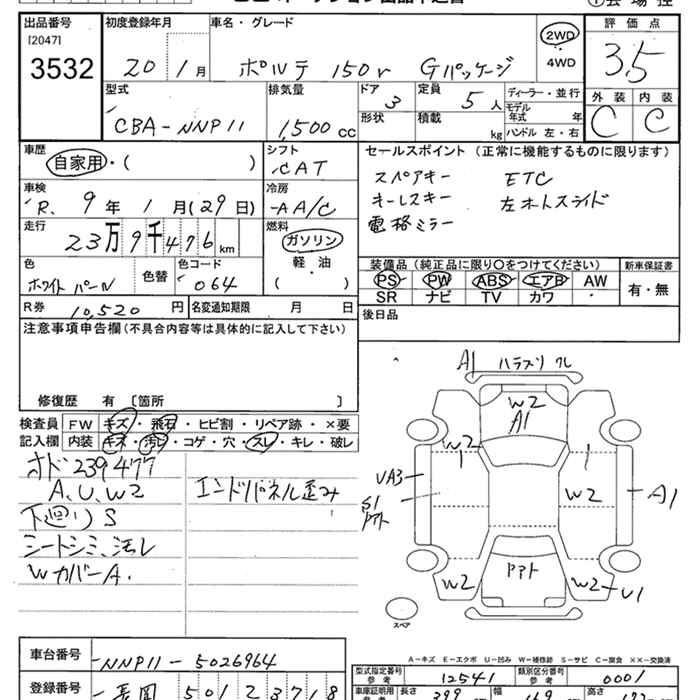 出品番号 初度登録年月 車名・グレード 2WD 評価点
[2047]
3532 20 1月 ポルテ 150r Gパッケージ 4WD 3.5
型式 排気量 ドア 定員 ディーラー・並行 外装 内装
CBA-NNP11 1,500cc 3 5人 モデル年式 年 C C
形状 積載 kg ハンドル 左・右
車歴 シフト セールスポイント(正常に機能するものに限ります)
自家用・( ) CAT スペアキー ETC
車検 冷房 キーレスキー 左オートスライド
R. 9年 1月(29日) AA/C 電格ミラー
走行 燃料
23万9千476km ガソリン
色 色替 色コード 軽・油 装備品(純正品に限り○をつけてください) 新車保証書
ホワイトパール 064 ( ) PS PW ABS エアB AW 有・無
R券 10,520円 名変通知期限 月 日 SR ナビ TV カワ ・
注意事項申告欄(不具合内容等は具体的に記入して下さい) 後日品
修復歴 有 〔箇所 〕
検査員 FW キズ・飛石・ヒビ割・リペア跡・×要
記入欄 内装 キズ・汚れ・コゲ・穴・スレ・キレ・破レ
オド239477
A、U、W2 エンドパネル歪み
下廻りS
シートシミ、汚レ
WカバーA.
A1
W2
A1
W2
UA3
S1
W2
A1
W2
W2
U1
スペア
A-キズ E-エクボ U-凹み W-補修跡 S-サビ C-腐食 ××-交換済
車台番号 NNP11-5026964
型式指定番号 参考 12541 類別区分番号 参考 0001
登録番号 501 23718
車庫証明用 参考 長さ 399 幅 169 高さ